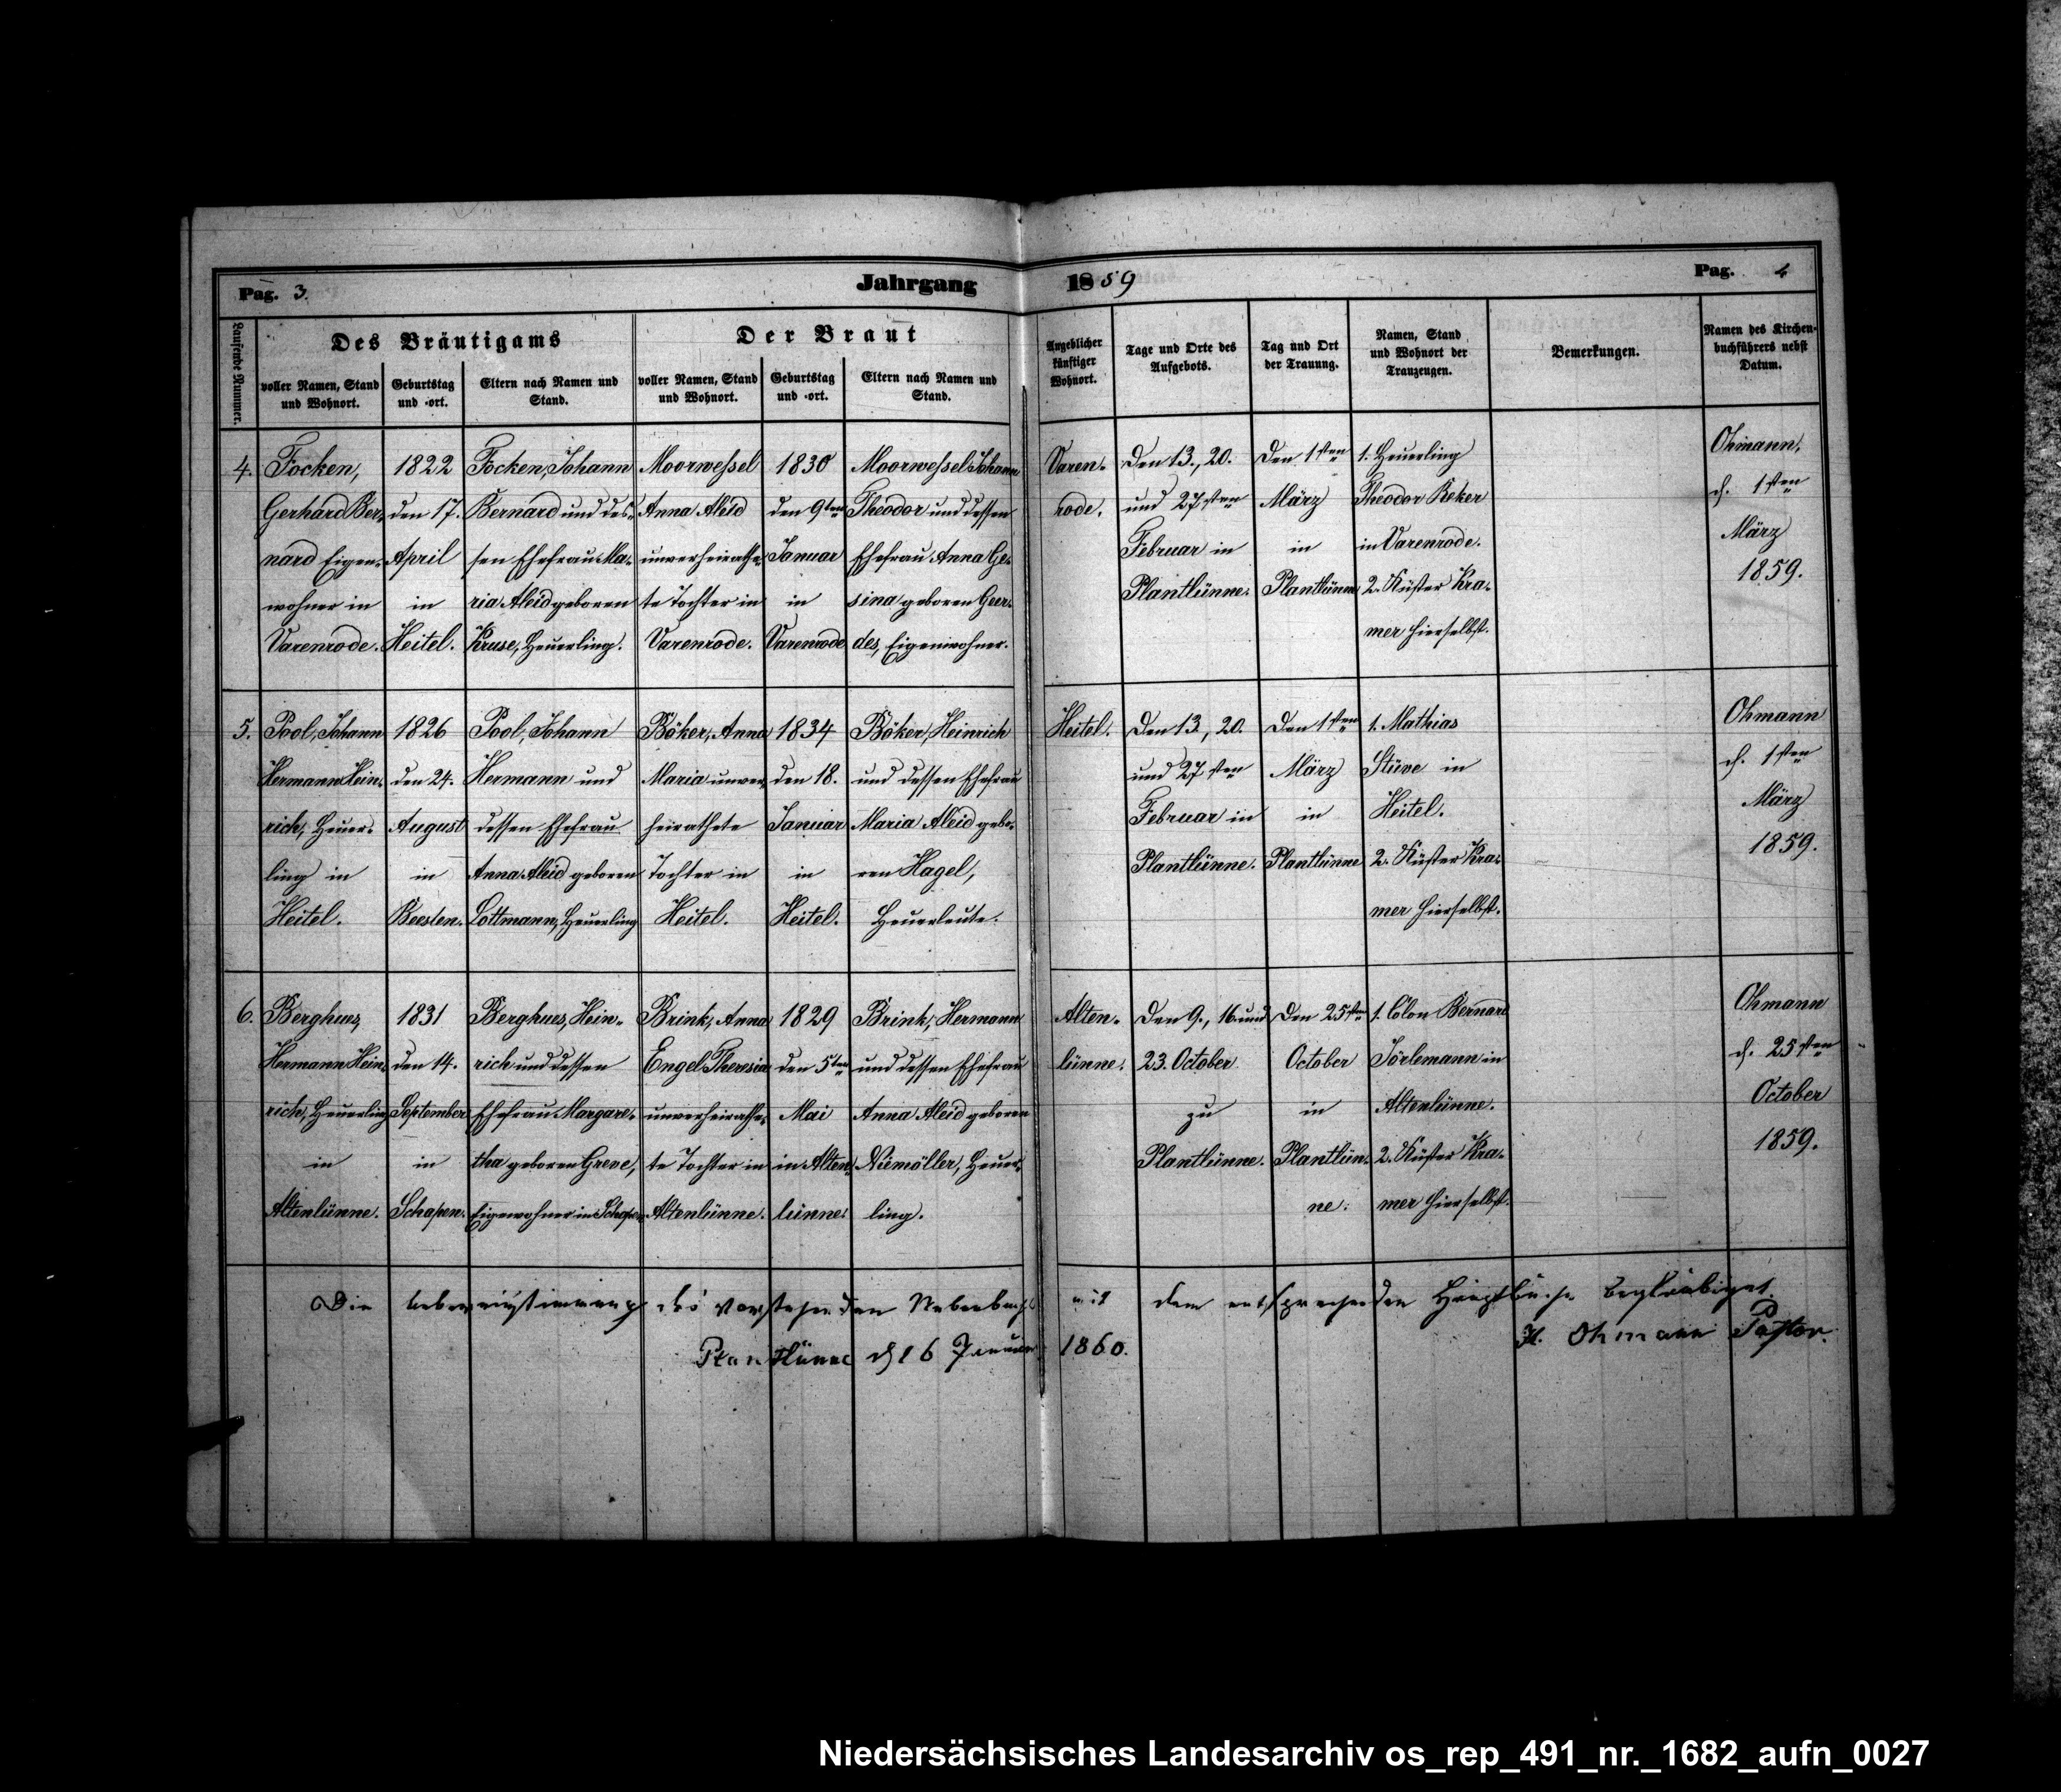 Pag. 3.
Jahrgang 1859
Pag. 4
Laufende Nummer.
Des Bräutigams
voller Namen, Stand und Wohnort.
Geburtstag und -ort.
Eltern nach Namen und Stand.
Der Braut
voller Namen, Stand und Wohnort.
Geburtstag und -ort.
Eltern nach Namen und Stand.
Angeblicher künftiger Wohnort.
Tage und Orte des Aufgebots.
Tag und Ort der Trauung.
Namen, Stand und Wohnort der Trauzeugen.
Bemerkungen.
Namen des Kirchen-
buchführers nebst
Datum.
4.
Focken,
Gerhard Ber-
nard Eigen-
wohner in
Varenrode.
1822
den 17.
April
in
Heitel.
Focken, Johann
Bernard und des-
sen Ehefrau Ma-
ria Aleid geboren
Kruse, Heuerling.
Moorwessel
Anna Aleid
unverheirathe-
te Tochter in
Varenrode.
1830
den 9ten
Januar
in
Varenrode
Moorwessel Johann
Theodor und dessen
Ehefrau Anna Ge-
sina geboren Geer-
des, Eigenwohner.
Varen-
rode.
Den 13., 20.
und 27sten
Februar in
Plantlünne.
Den 1sten
März
in
Plantlünne
1. Heuerling
Theodor Reker
in Varenrode.
2. Küster Kra-
mer hierselbst.
Ohmann,
d. 1sten
März
1859.
5.
Pool, Johann
Hermann Hein-
rich, Heuer-
ling in
Heitel.
1826
den 24.
August
in
Beesten.
Pool, Johann
Hermann und
dessen Ehefrau
Anna Aleid geboren
Lottmann, Heuerling
Böker, Anna
Maria unver-
heirathete
Tochter in
Heitel.
1834
den 18.
Januar
in
Heitel.
Böker, Heinrich
und dessen Ehefrau
Maria Aleid gebo-
ren Hagel,
Heuerleute.
Heitel.
Den 13., 20.
und 27sten
Februar in
Plantlünne.
Den 1sten
März
in
Plantlünne
1. Mathias
Stüve in
Heitel.
2. Küster Kra-
mer hierselbst.
Ohmann
d. 1sten
März
1859.
6.
Berghues,
Hermann Hein-
rich, Heuerling
in
Altenlünne.
1831
den 14.
September
in
Schapen.
Berghues, Hein-
rich und dessen
Ehefrau Margare-
tha geboren Greve,
Eigewohner in Schapen
Brink, Anna
Engel Theresia
unverheirathe-
te Tochter in
Altenlünne.
1829
den 5ten
Mai
in Alten-
lünne.
Brink, Hermann
und dessen Ehefrau
Anna Aleid geboren
Niemöller, Heuer-
ling.
Alten-
lünne.
Den 9., 16. und
23. October
zu
Plantlünne.
Den 25sten
October
in
Plantlün-
ne.
1. Colon Bernard
in
Altenlünne.
2. Küster Kra-
mer hierselbst.
Ohmann
d. 25sten
October
1859.
Die Uebereinstimmung des vorstehenden Nebenbuchs mit dem entsprechenden Hauptbuche beglaubiget.
Plantlünne d 16 Januar 1860.
H. Ohmann Pastor.
Niedersächsisches Landesarchiv os_rep_491_nr._1682_aufn_0027